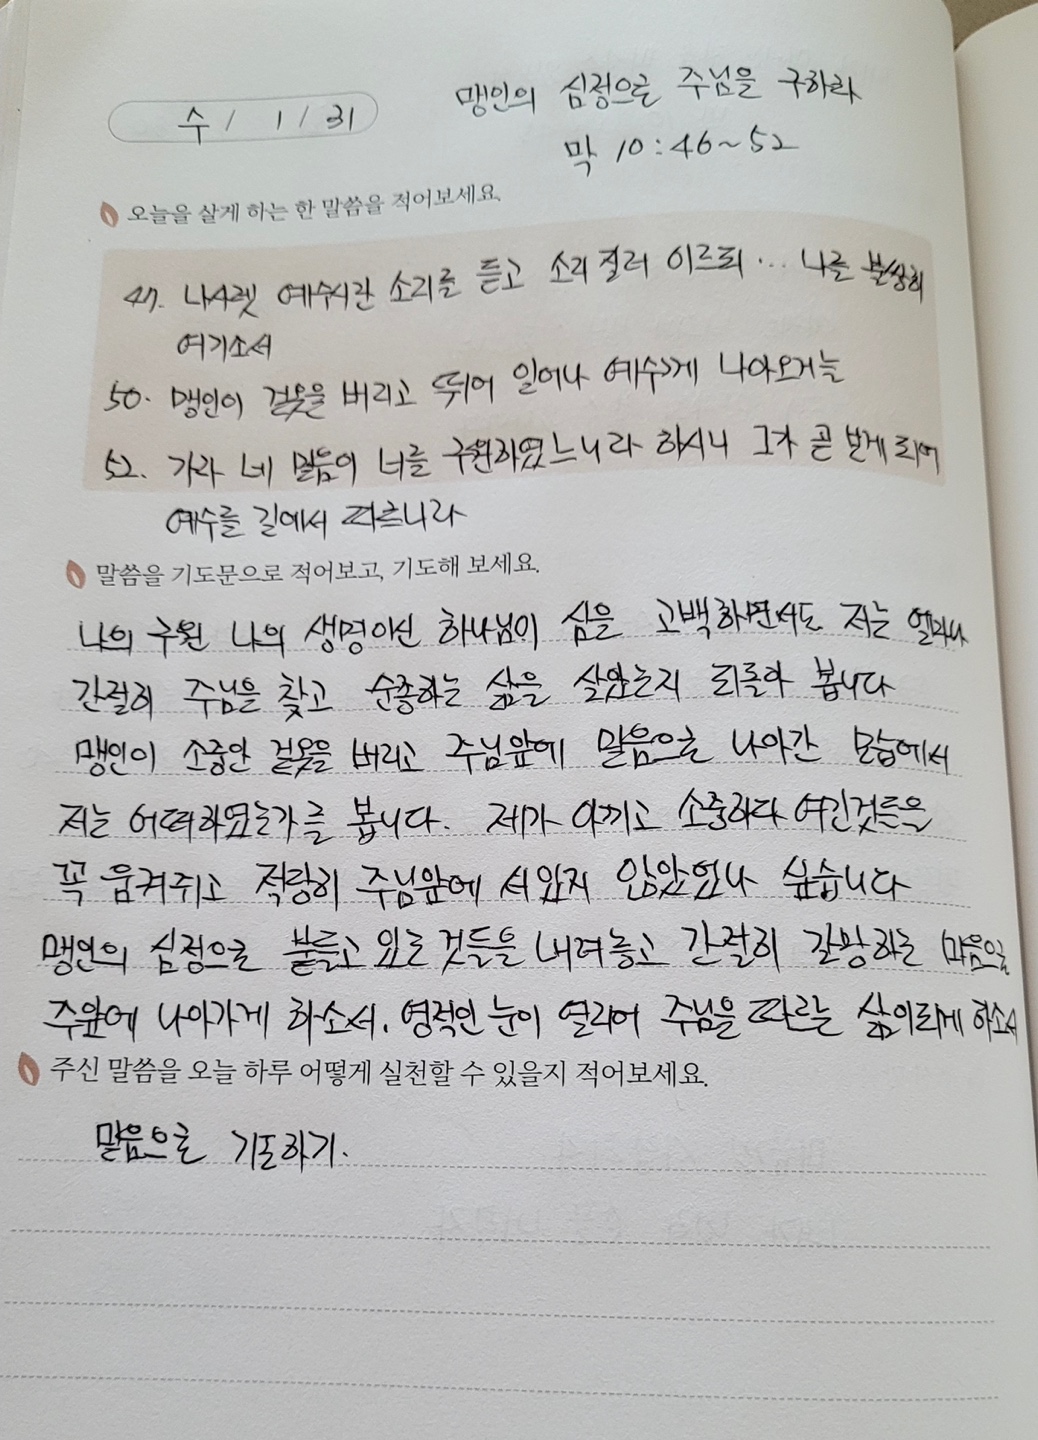 맹인의 심정으로 주님을 구하라
수 / 1 / 31
막 10:46~52
오늘을 살게 하는 한 말씀을 적어보세요.
47. 나사렛 예수시란 소리를 듣고 소리 질러 이르되... 나를 불쌍히
여기소서
50. 맹인이 겉옷을 버리고 뛰어 일어나 예수께 나아오거늘
52. 가라 네 믿음이 너를 구원하였느니라 하시니 그가 곧 보게 되어
예수를 길에서 따르니라
말씀을 기도문으로 적어보고, 기도해 보세요.
나의 구원 나의 생명이신 하나님이심을 고백하면서도 저는 얼마나
간절히 주님을 찾고 순종하는 삶을 살았는지 되돌아 봅니다
맹인이 소중한 겉옷을 버리고 주님앞에 믿음으로 나아간 모습에서
저는 어떠하였는가를 봅니다. 제가 아끼고 소중하다 여긴것들을
꼭 움켜쥐고 적당히 주님앞에 서 있지 않았었나 싶습니다
맹인의 심정으로 붙들고 있는 것들을 내려놓고 간절히 갈망하는 마음으로
주앞에 나아가게 하소서. 영적인 눈이 열리어 주님을 따르는 삶이되게 하소서
주신 말씀을 오늘 하루 어떻게 실천할 수 있을지 적어보세요.
믿음으로 기도하기.